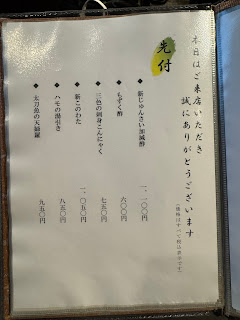 本日はご来店いただき
誠にありがとうございます
(価格はすべて税込表示です)
先付
◆ 新じゅんさい加減酢 一、一〇〇円
◆ もずく酢 六〇〇円
◆ 三色の刺身こんにゃく 七五〇円
◆ 新このわた 一、〇五〇円
◆ ハモの湯引き 八五〇円
◆ 太刀魚の天婦羅 九五〇円